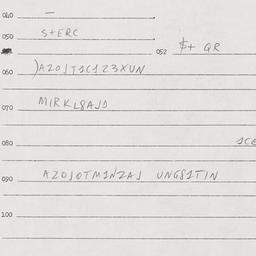 040 —
050 S+ERC
052 $+ QR
060 )AZOJT1C123XUN
070 MIRKL8AJ1
080 1CE
090 AZOJOTM1NZAJ UNG81TIN
100